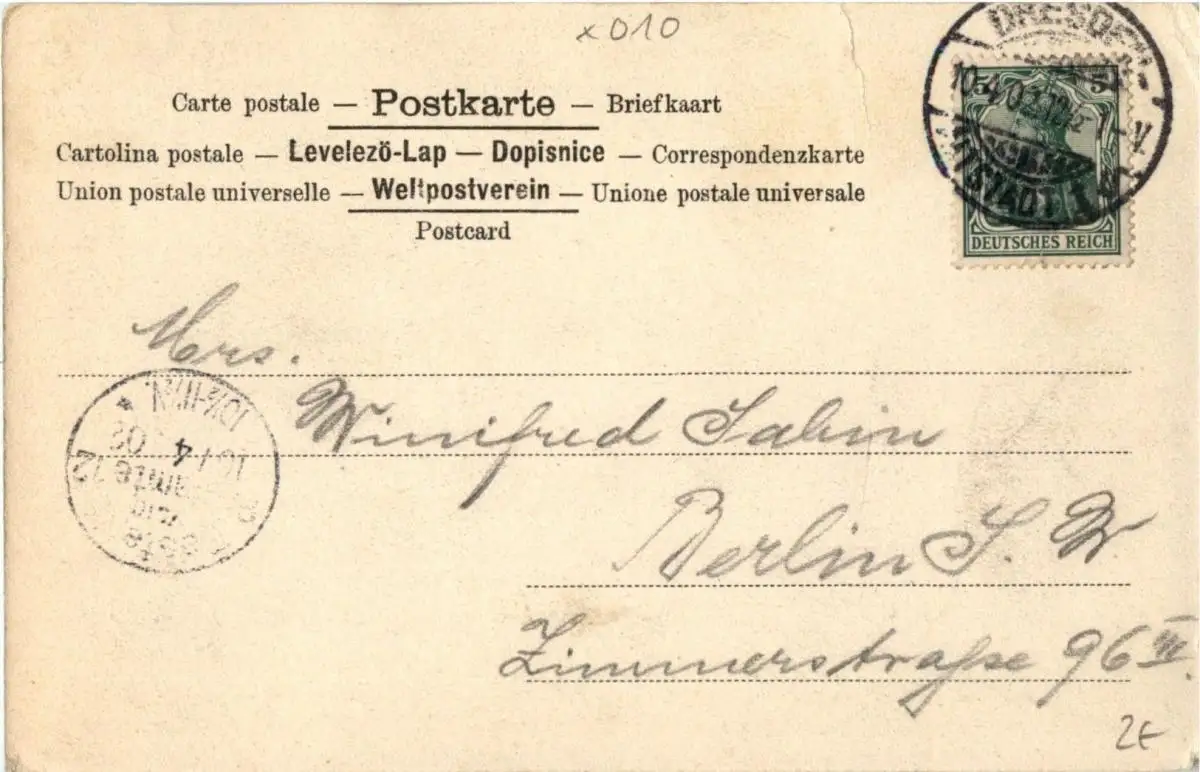 x 010
Carte postale — Postkarte — Briefkaart
Cartolina postale — Levelezö-Lap — Dopisnice — Correspondenzkarte
Union postale universelle — Weltpostverein — Unione postale universale
Postcard
DRESDEN-
10.4.02
ALTSTADT 1
5 5
DEUTSCHES REICH
Mrs.
Winifred Sabin
Berlin S. W
Zimmerstraße 96 III.
10¼-11½N.
10/4 02
2€